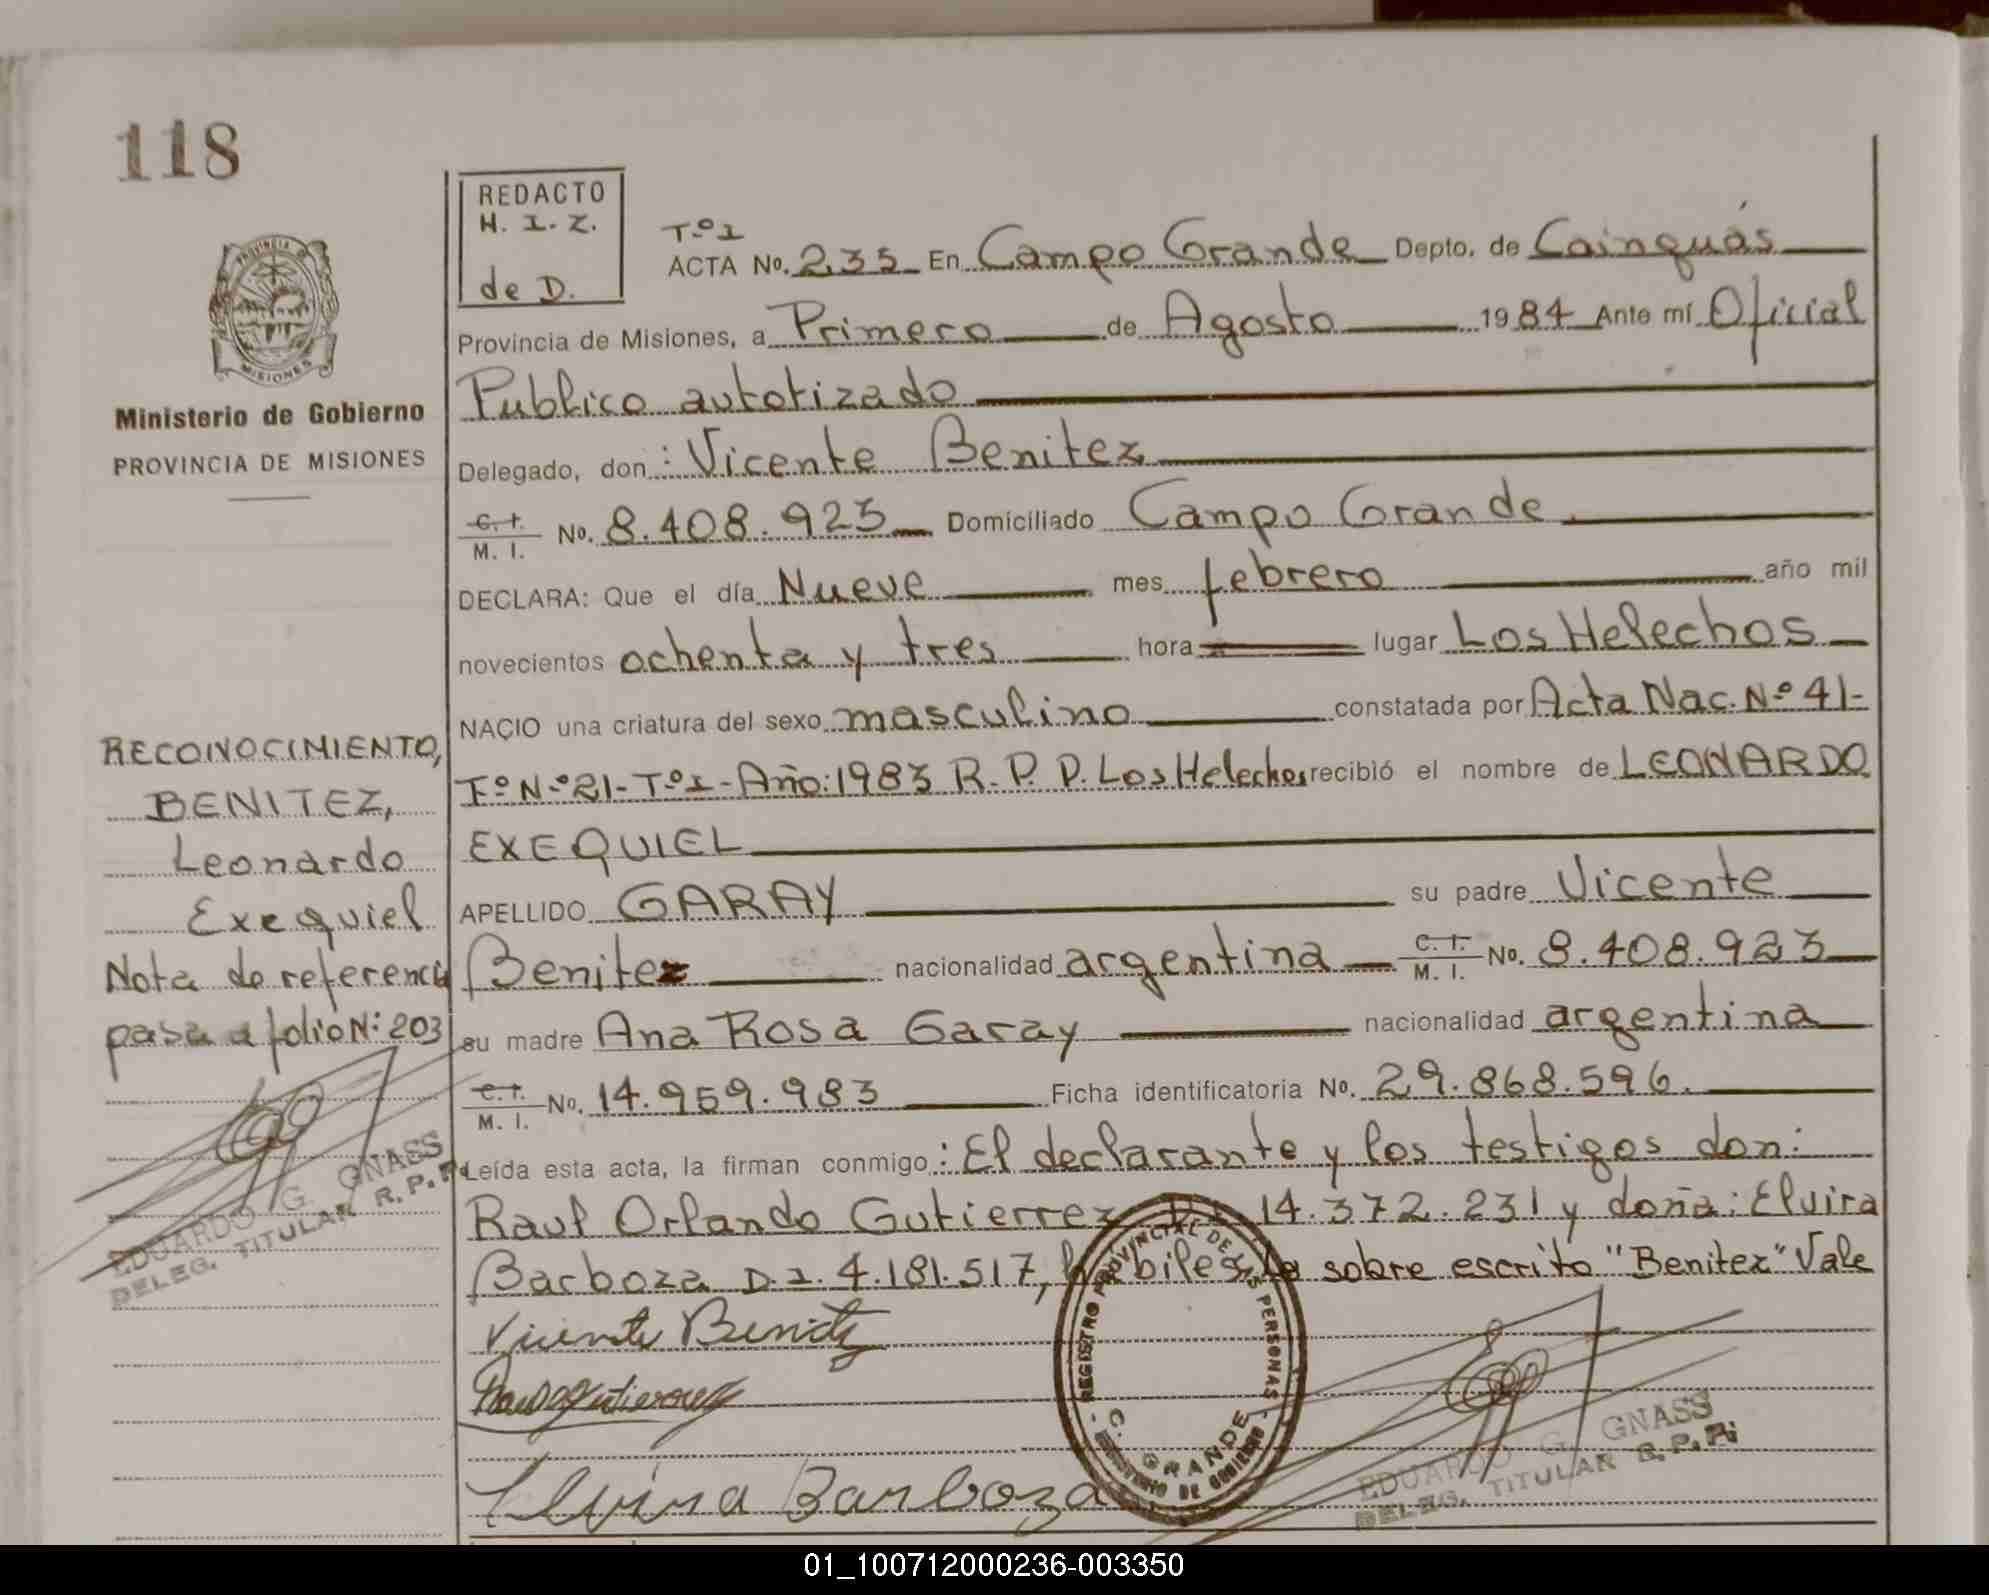 118
REDACTO
H. I. Z.
de D.
PROVINCIA D
MISIONES
Ministerio de Gobierno
PROVINCIA DE MISIONES
Tº I
ACTA No. 235 En Campo Grande Depto. de Cainguás
Provincia de Misiones, a Primero de Agosto 1984 Ante mí Oficial
Publico autotizado
Delegado, don : Vicente Benitez
C. I. M. I. No. 8.408.923 Domiciliado Campo Grande
DECLARA: Que el día Nueve mes febrero año mil
novecientos ochenta y tres hora lugar Los Helechos
NACIO una criatura del sexo masculino constatada por Acta Nac. Nº 41-
Fº Nº 21- Tº I - Año: 1983 R. P. P. Los Helechos recibió el nombre de LEONARDO
EXEQUIEL
APELLIDO GARAY su padre Vicente
Benitez nacionalidad argentina C. I. M. I. No. 8.408.923
su madre Ana Rosa Garay nacionalidad argentina
C. I. M. I. No. 14.959.983 Ficha identificatoria No. 29.868.596.
Leída esta acta, la firman conmigo : El declarante y los testigos don:
Raul Orlando Gutierrez D.I. 14.372.231 y doña: Elvira
Barboza D.I. 4.181.517, habiles, Lo sobre escrito "Benitez" Vale
Vicente Benitez
Elvira Barboza
RECONOCIMIENTO,
BENITEZ,
Leonardo
Exequiel
Nota de referencia
pasa a folio Nº: 203
EDUARDO G. GNASS
DELEG. TITULAR R. P. P.
REGISTRO PROVINCIAL DE LAS PERSONAS
C. GRANDE
MINISTERIO DE GOBIERNO
EDUARDO G. GNASS
DELEG. TITULAR R. P. P.
01_100712000236-003350